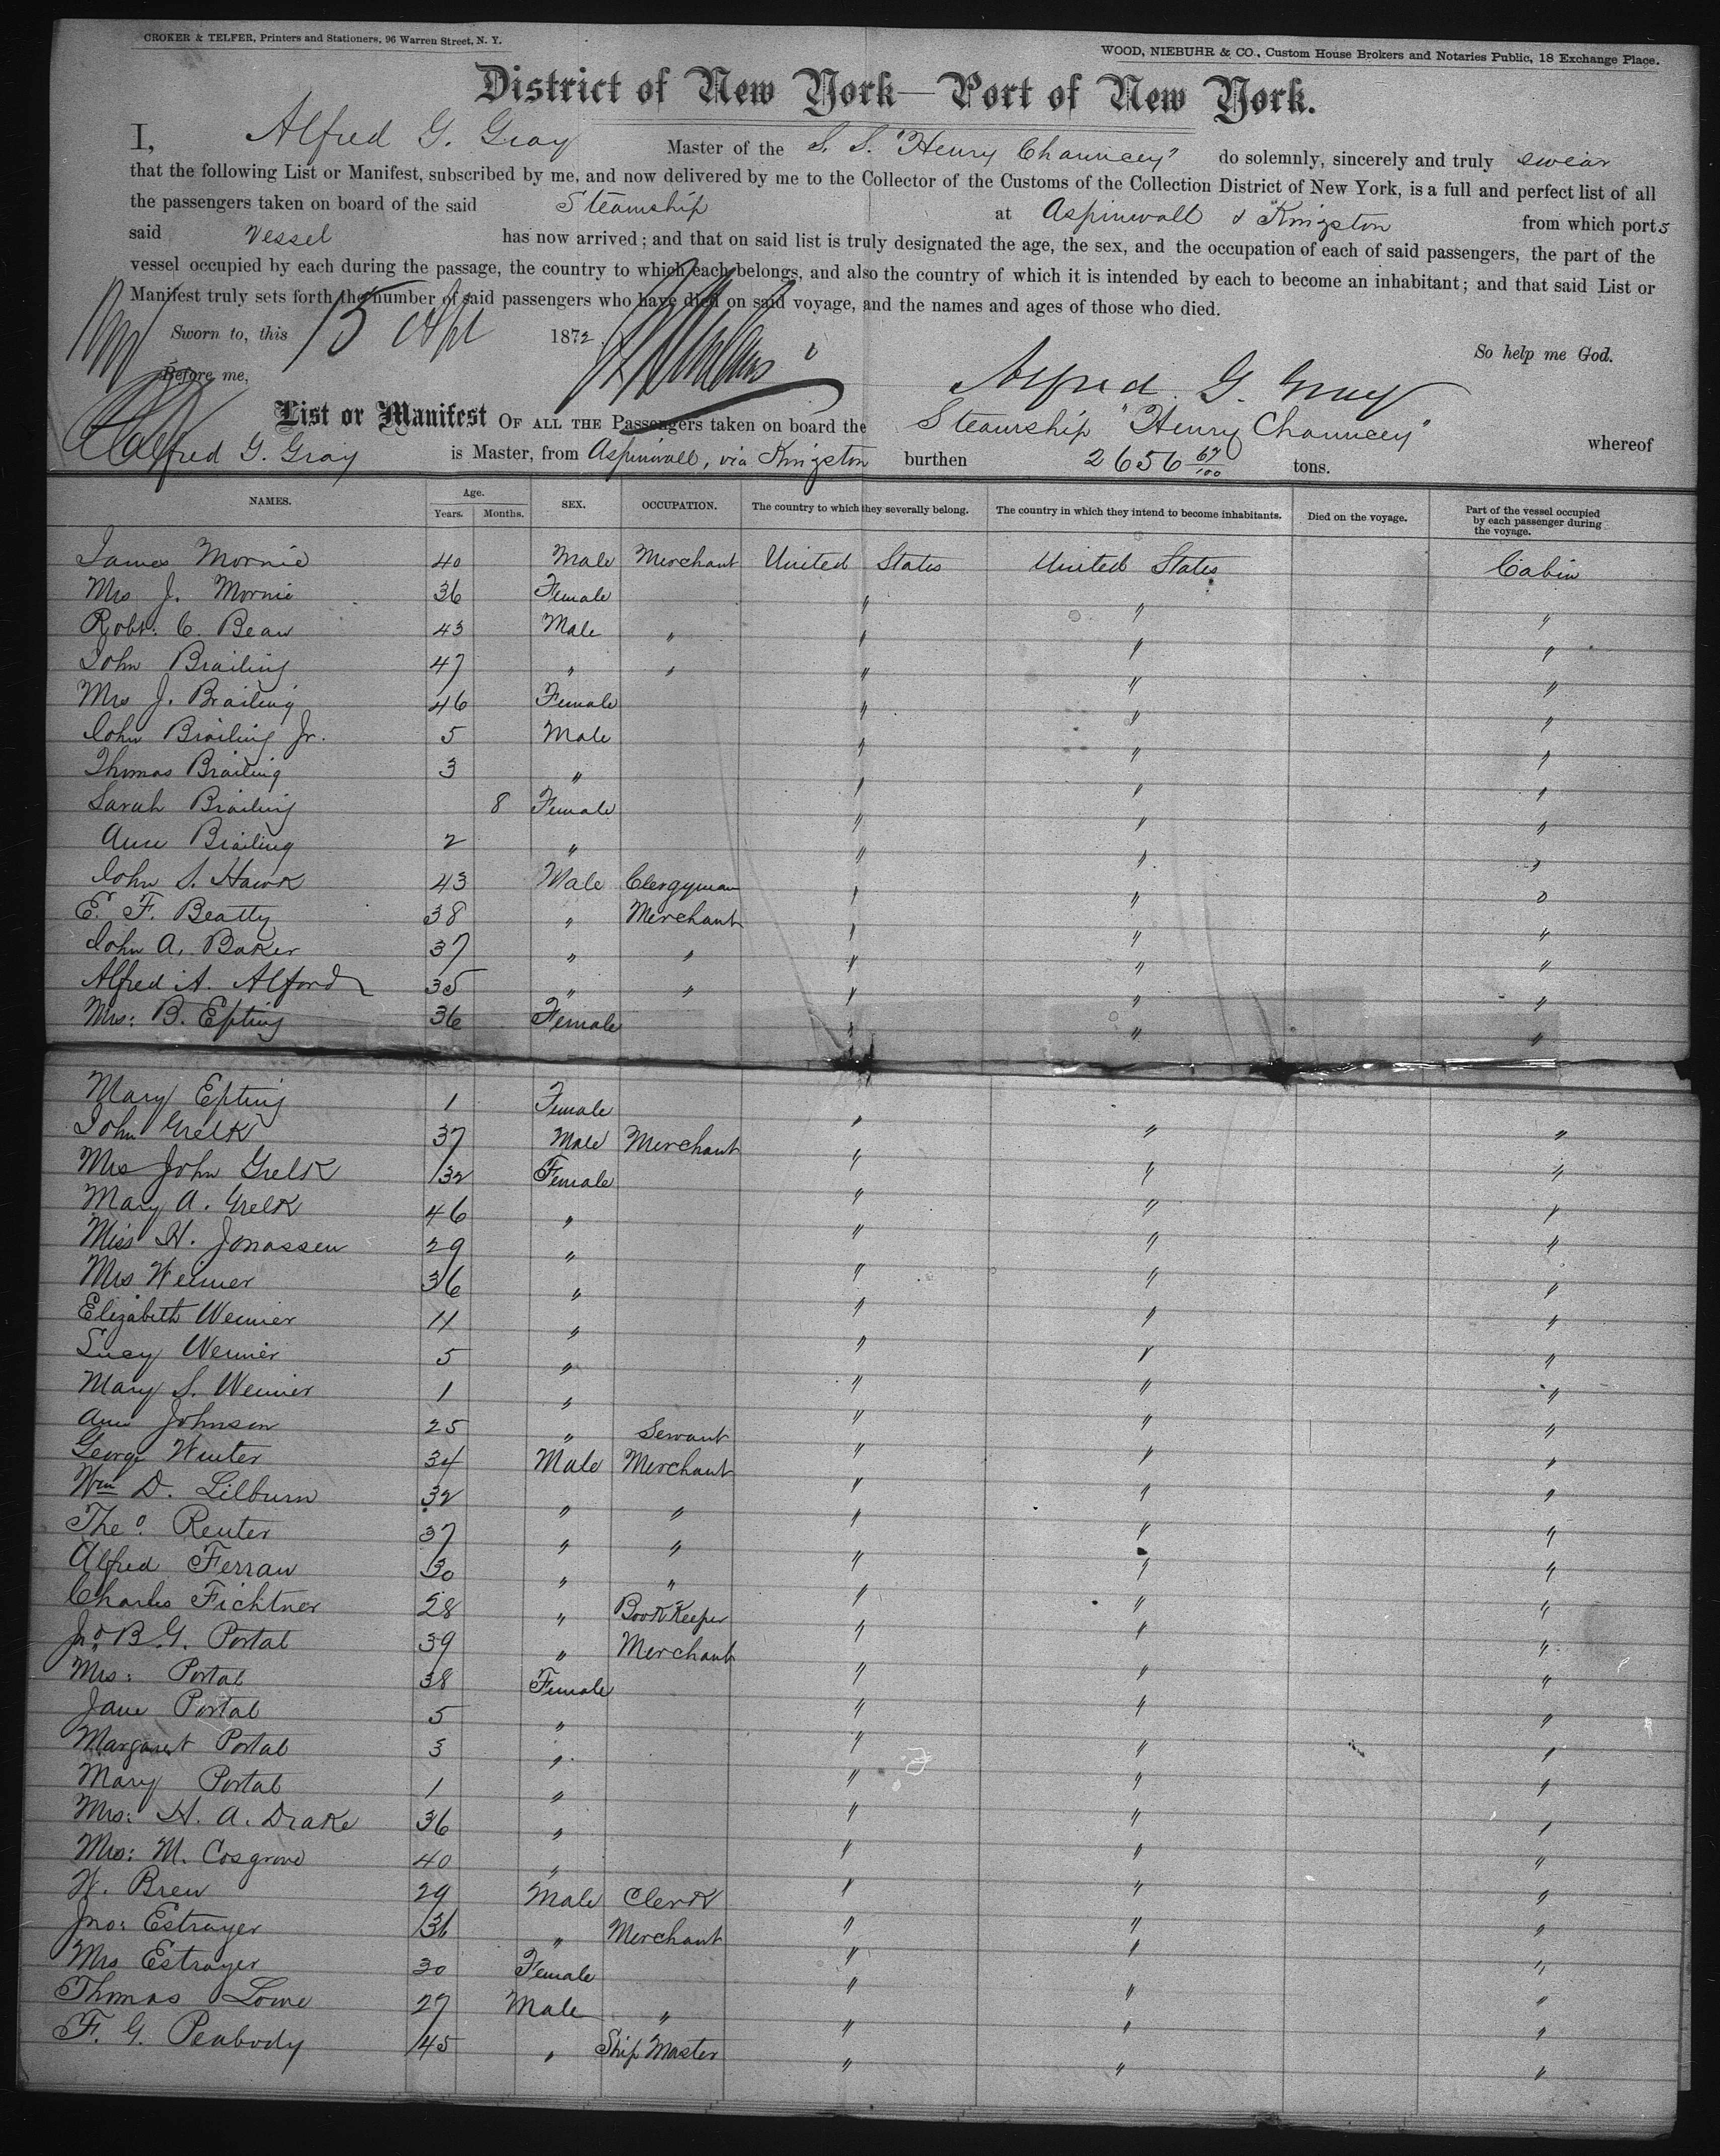 CROKER & TELFER, Printers and Stationers, 96 Warren Street, N. Y.
WOOD, NIEBUHR & CO., Custom House Brokers and Notaries Public, 18 Exchange Place.
District of New York—Port of New York.
I, Alfred G. Gray Master of the S. S. "Henry Chauncey" do solemnly, sincerely and truly swear
that the following List or Manifest, subscribed by me, and now delivered by me to the Collector of the Customs of the Collection District of New York, is a full and perfect list of all
the passengers taken on board of the said Steamship at Aspinwall & Kingston from which ports
said Vessel has now arrived; and that on said list is truly designated the age, the sex, and the occupation of each of said passengers, the part of the
vessel occupied by each during the passage, the country to which each belongs, and also the country of which it is intended by each to become an inhabitant; and that said List or
Manifest truly sets forth the number of said passengers who have died on said voyage, and the names and ages of those who died.
Sworn to, this 15 Apl 1872
So help me God.
Before me,
Alfred G. Gray
List or Manifest OF ALL THE Passengers taken on board the Steamship "Henry Chauncey" whereof
Alfred G. Gray is Master, from Aspinwall, via Kingston burthen 2656 67/100 tons.
NAMES. Age. Years. Months. SEX. OCCUPATION. The country to which they severally belong. The country in which they intend to become inhabitants. Died on the voyage. Part of the vessel occupied by each passenger during the voyage.
James Mornie 40 Male Merchant United States United States Cabin
Mrs J. Mornie 36 Female " " "
Robt. C. Bean 43 Male " " " "
John Brailing 47 " " " " "
Mrs J. Brailing 46 Female " " "
John Brailing Jr. 5 Male " " "
Thomas Brailing 3 " " " "
Sarah Brailing 8 Female " " "
Ann Brailing 2 " " " "
John S. Hawk 43 Male Clergyman " " "
E. F. Beatty 38 " Merchant " " "
John A. Baker 37 " " " " "
Alfred A. Alford 35 " " " " "
Mrs: B. Epting 36 Female " " "
Mary Epting 1 Female " " "
John Grelk 37 Male Merchant " " "
Mrs John Grelk 32 Female " " "
Mary A. Grelk 46 " " " "
Miss H. Jonassen 29 " " " "
Mrs Weimer 36 " " " "
Elizabeth Weimer 11 " " " "
Lucy Weimer 5 " " " "
Mary S. Weimer 1 " " " "
Ann Johnson 25 " Servant " " "
George Winter 34 Male Merchant " " "
Wm D. Lilburn 32 " " " " "
Theo. Reuter 37 " " " " "
Alfred Ferran 30 " " " " "
Charles Fichtner 28 " BookKeeper " " "
Jno. B. G. Portal 39 " Merchant " " "
Mrs: Portal 38 Female " " "
Jane Portal 5 " " " "
Margaret Portal 3 " " " "
Mary Portal 1 " " " "
Mrs: H. A. Drake 36 " " " "
Mrs: M. Cosgrove 40 " " " "
W. Brew 29 Male Clerk " " "
Jno: Estrayer 36 " Merchant " " "
Mrs Estrayer 30 Female " " "
Thomas Lowe 27 Male " " " "
F. G. Peabody 45 " Ship Master " " "